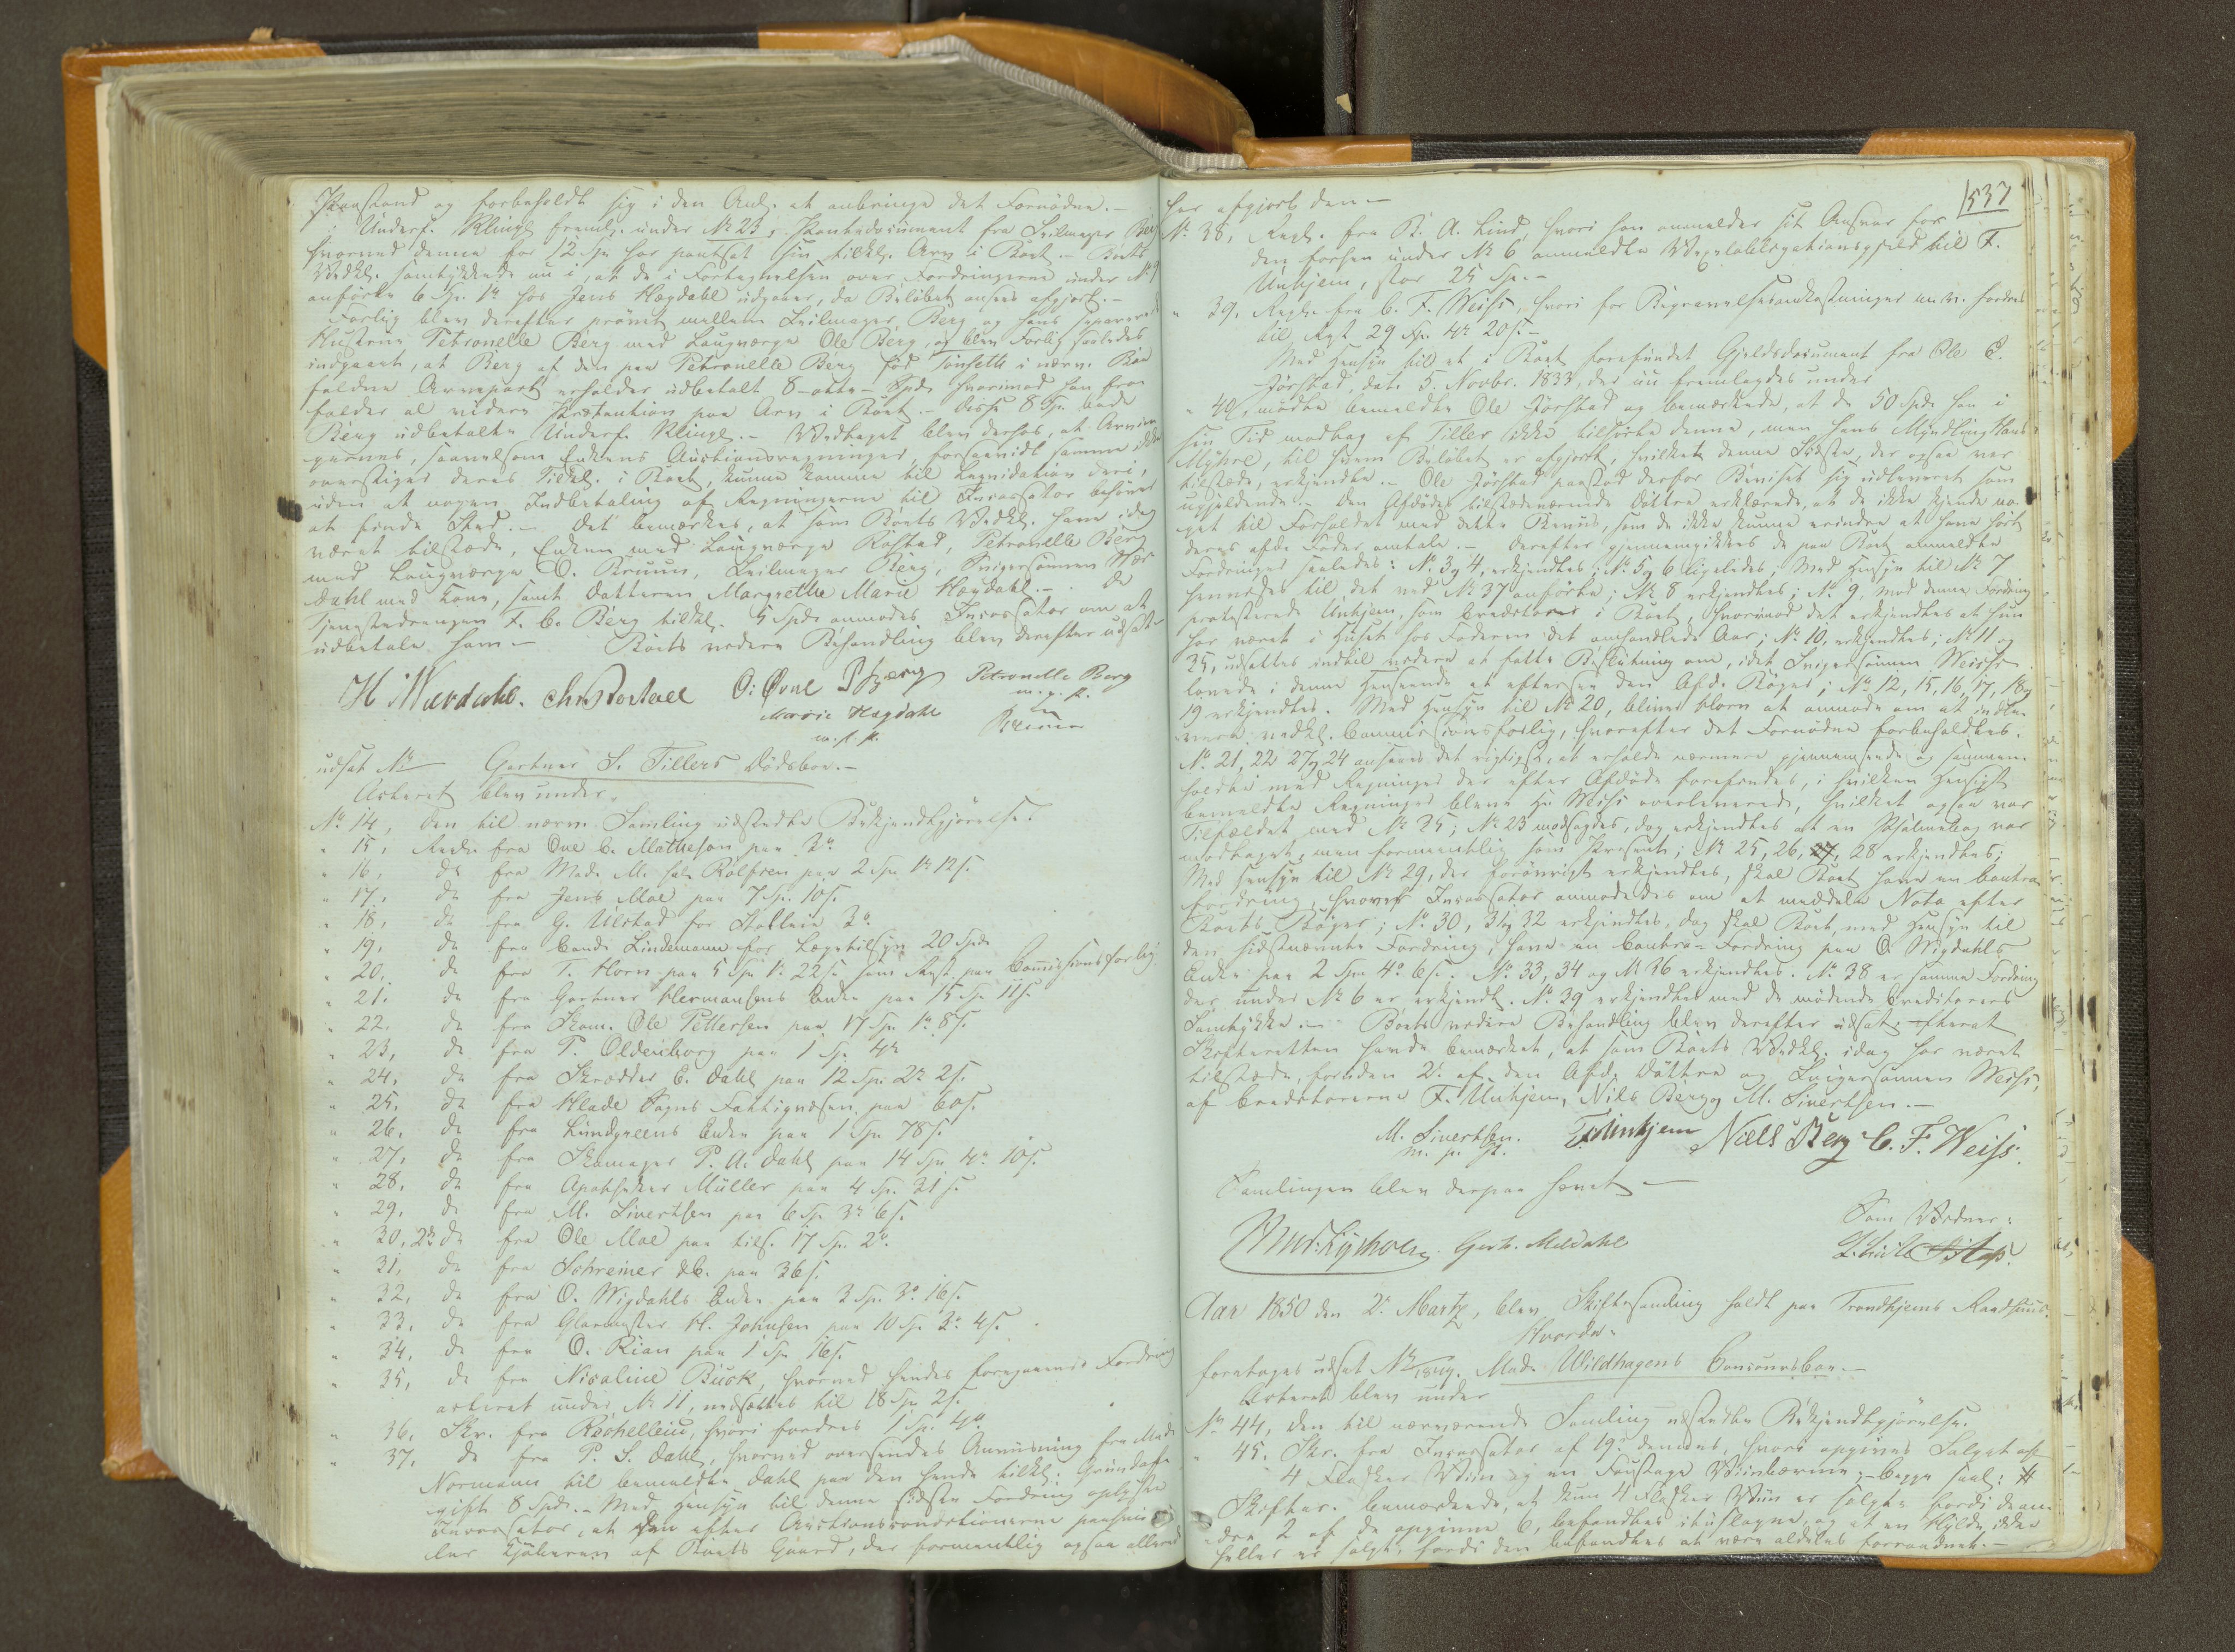 Paastand og forbeholdt sig i den Anl. at anbringe det Fornødne.-
Underf. Klingl. freml. under No 23, Skandedocument fra Seilmager Berg
hvorved denne for 12 Sp. har pantsat sin tilkl. Arv i Boet.- Boets
Vedkl. samtykkede nu i, at de i Fortegnelsen over Fordringerne under No 9
anførte 6 Sp. 1 hos Jens Hægdahl udgaaer, da Beløbet ansees afgjort.-
Forlig blev derefter prøvet mellem Seilmager Berg og hans separerede
Hustrue Petronelle Berg med Laugværge Ole Berg, og blev Forlig saaledes
indgaaet, at Berg af den paa Petronelle Berg fød Tonseth i nærv. Boe
faldne Arvepart erholder udbetalt 8-otte- Spd. hvorimod han fra
falder al videre Prætention paa Arv i Boet.- Disse 8 Sp. bad
Berg udbetalte Underf. Klingl.- Vedtaget blev derhos, at Arvin
gernes, saavelsom Enkens Auctionsregninger, forsaavidt samme ikke
overstiger deres Tilkl. i Boet, kunne komme til Liqvidation deri,
uden at nogen Indbetaling af Regningerne til Incassator behøver
at finde Sted.- Det bemærkes, at som Boets Vedkl. have idag
været tilstede, Enken med Laugværge Rostad, Petronelle Berg
med Laugværge O. Bruun, Seilmager Berg, Svigersønnen Wær
dahl med Kone, samt Datteren Margrethe Marie Hægdahl.- De
Tjenestedrengen F. C. Berg tilkl. 5 Spd. anmodes Incassator om at
udbetale ham.- Boets videre Behandling blev derefter udsat.-
H Wærdahl. Chr Rostad O: Øvne P Berg Petronelle Berg
m. p. P.
Marie Hægdahl
m. p. P. Bruun
udsat No Gartner S. Tillers Dødsboe.-
Acteret blev under.
No 14, den til nærv. Samling udstedte Bekjendtgjørelse.
" 15, Regn. fra Ove C. Matheson paa 3
" 16, do fra Mad. M. sal. Rolfsen paa 2 Sp. 1 12 s.
" 17, do fra Jens Moe paa 7 Sp. 10 s.
" 18, do fra G. Ulstad for Stolleie 3
" 19, do fra Cand. Lindemann for Lægetilsyn 20 Spd.
" 20, do fra T. Horn paa 5 Sp. 1 22 s. som Rest paa Commissionsforlig.
" 21, do fra Gartner Hermansens Enke paa 15 Sp. 11 s.
" 22, do fra Skom. Ole Pettersen paa 17 Sp. 1 8 s.
" 23, do fra P. Oldenborg paa 1 Sp. 4
" 24, do fra Skrædder E. Dahl paa 12 Sp. 2 2 s.
" 25, do fra Hlade Sogns Fattigvæsen paa 60 s.
" 26, do fra Lundgreens Enke paa 1 Sp. 78 s.
" 27, do fra Skomager P. A. Dahl paa 14 Sp. 4 10 s.
" 28, do fra Apotheker Müller paa 4 Sp. 21 s.
" 29, do fra M. Sivertsen paa 6 Sp. 3 6 s.
" 30, 2de do fra Ole Moe paa tils. 17 Sp. 2
" 31, do fra Schreiner &C. paa 36 s.
" 32, do fra O. Wigdahls Enke paa 3 Sp. 3 16 s.
" 33, do fra Glarmester H. Johnsen paa 10 Sp. 3 4 s.
" 34, do fra O. Rian paa 1 Sp. 16 s.
" 35, do fra Nicoline Buck, hvorved hendes foregaaende Fordring
acteret under No 11, nedsættes til 18 Sp. 2 s.
" 36, Skr. fra Rachelleiu, hvori fordres 1 Sp. 4
" 37, do fra P. S. Dahl, hvorved oversendes Anviisning fra Mad.
Normann til bemeldte Dahl paa den hende tilkl. Grundaf-
gift 8 Spd.- Med Hensyn til denne sidste Fordring oplyste
Incassator, at den efter Auctionsconditionerne paahvi-
ler Kjøberen af Boets Gaard, der formentlig ogsaa allerede
537
har afgjort den.-
No 38, Regn. fra B. A. Lind, hvori han anmelder sit Ansvar for
den forhen under No 6 anmeldte Vexelobligationsgjeld til F.
Unhjem, stor 25 Sp.-
" 39, Regn. fra C. F. Weiss, hvori for Begravelsesomkostninger m. v. fordres
til Rest 29 Sp. 4 20 s.-
Med Hensyn til et i Boet forefundet Gjeldsdocument fra Ole E.
Jørstad, dat. 5. Novbr. 1833, der nu fremlagdes under
" 40, mødte bemeldte Ole Jørstad og bemærkede, at de 50 Spd. han i
sin Tid modtog af Tiller ikke tilhørte denne, men hans Myndling Hans
Myhre, til hvem Beløbet er afgjort, hvilket denne Sidste, der ogsaa var
tilstede, erkjendte.- Ole Jørstad paastod derfor Beviset sig udleveret som
ugjeldende.- Den Afdødes tilstedeværende Døttre erklærede, at de ikke kjende no-
get til Forholdet med dette Beviis, som de ikke kunne erindre at have hørt
deres afd. Fader omtale.- Derefter gjennemgikkes de paa Boet anmeldte
Fordringer saaledes: No 3 og 4, erkjendtes; No 5 og 6 ligeledes; Med Hensyn til No 7
henvises til det ved No 37 anførte; No 8 erkjendtes; No 9, mod denne Fordring
protesterede Unhjem, som Creditorer i Boet, hvorimod det erkjendtes at hun
har været i Huset hos Faderen det omhandlede Aar; No 10, erkjendtes; No 11 og
35, udsattes indtil videre at fatte Beslutning om, idet Svigersønnen Weiss
lovede i denne Henseende at eftersee den Afd. Bøger; No 12, 15, 16, 17, 18 og
19 erkjendtes. Med Hensyn til No 20, bliver Horn at anmode om at indle-
vere vedkl. Commissionsforlig, hvorefter det Fornødne forbeholdtes.
No 21, 22 27 og 24 ansaaes det rigtigst, at erholde nærmere gjennemseede og sammen-
holdte med Regninger der efter Afdøde forefindes, i hvilken Hensigt
bemeldte Regninger bleve Hr. Weiss overleverede, hvilket ogsaa var
Tilfældet med No 25; No 23 modsagdes, dog erkjendtes at en Psalmebog var
modtaget, men formeentlig som Present; No 25, 26, 27, 28 erkjendtes;
Med Hensyn til No 29, der forøvrigt erkjendtes, skal Boet have en Contra-
fordring, hvorom Incassator anmodedes om at meddele Nota efter
Boets Bøger; No 30, 31 og 32 erkjendtes, dog skal Boet, med Hensyn til
den sidstnævnte Fordring, have en Contra-Fordring paa O. Wigdahls
Enke paa 2 Spd 4 6 s. No 33, 34 og No 36 erkjendtes. No 38 er samme Fordring
der under No 6 er erkjendt. No 39 erkjendtes med de mødende Creditorers
Samtykke.- Boets videre Behandling blev derefter udsat, efterat
Skifteretten havde bemærket, at som Boets Vedkl. idag har været
tilstede, foruden 2 af den Afd. Døttre og Svigersønnen Weiss,
af Creditorerne F. Unhjem, Nils Berg og M. Sivertsen.-
M. Sivertsen. F. Unhjem Niels Berg C. F. Weiss.
m. p. P.
Samlingen blev derpaa hævet.-
Som Vidner:
Knud Lysholm Gerh. Meldahl
Aar 1850 den 2. Martz, blev Skiftesamling holdt paa Trondhjems Raadhuus.
Hvorda
foretages udsat No /1849. Mad. Wildhagens Concursboe.-
Acteret blev under
No 44, den til nærværende Samling udstedte Bekjendtgjørelse.
" 45. Skr. fra Incassator af 19. dennes, hvori opgives Salget af
4 Flasker Viin og en Foustage Viinbærme;- begge saal: #
Skifter. bemærkede, at kun 4 Flasker Viin er solgte fordi de an-
dre 2 af de opgivne 6, befandtes ituslagne, og at en Hylde ikke
heller er solgt, fordi den befandtes at være aldeles forraadnet.-